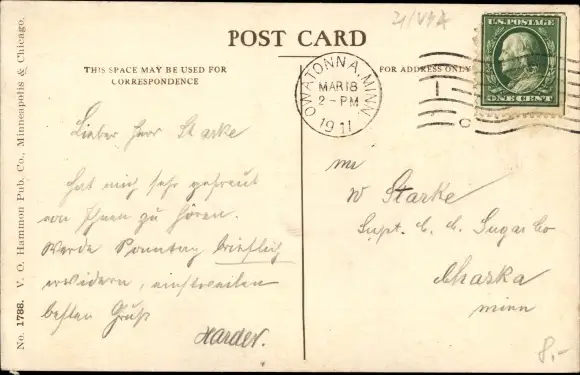 21/VIA
POST CARD
THIS SPACE MAY BE USED FOR
CORRESPONDENCE
FOR ADDRESS ONLY
OWATONNA, MINN.
MAR 18
2-PM
1911
U.S. POSTAGE
ONE CENT
No. 1788. V. O. Hammon Pub. Co., Minneapolis & Chicago.
Lieber Herr Starke
Hat mich sehr gefreut
von Ihnen zu hören.
Werde Sonntag brieflich
erwidern, einstweilen
besten Gruß
Harder.
Mr
W Starke
Supt. C. C. Sugar Co
Chaska
Minn
8,-